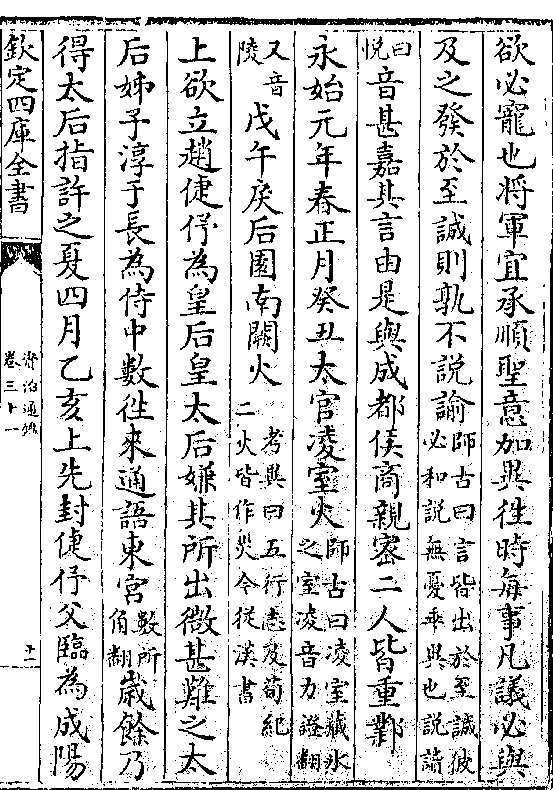 欲必寵也将軍宜承順聖意加異徃時每事凡議必與
及之發於至誠則孰不説諭師古曰言皆出於至誠彼必和説無憂乖異也説讀
曰悦音甚嘉其言由是與成都侯商親密二人皆重鄴
永始元年春正月癸丑太官凌室火師古曰凌室藏氷之室凌音力證翻
又音陵戊午戾后園南闕火考異曰五行志及荀紀二火皆作災今從漢書
上欲立趙倢伃為皇后皇太后嫌其所出微甚難之太
后姊子淳于長為侍中數徃來通語東宮數所角翻歳餘乃
得太后指許之夏四月乙亥上先封倢伃父臨為成陽
欽定四庫全書
資治通鑑
卷三十一
十一